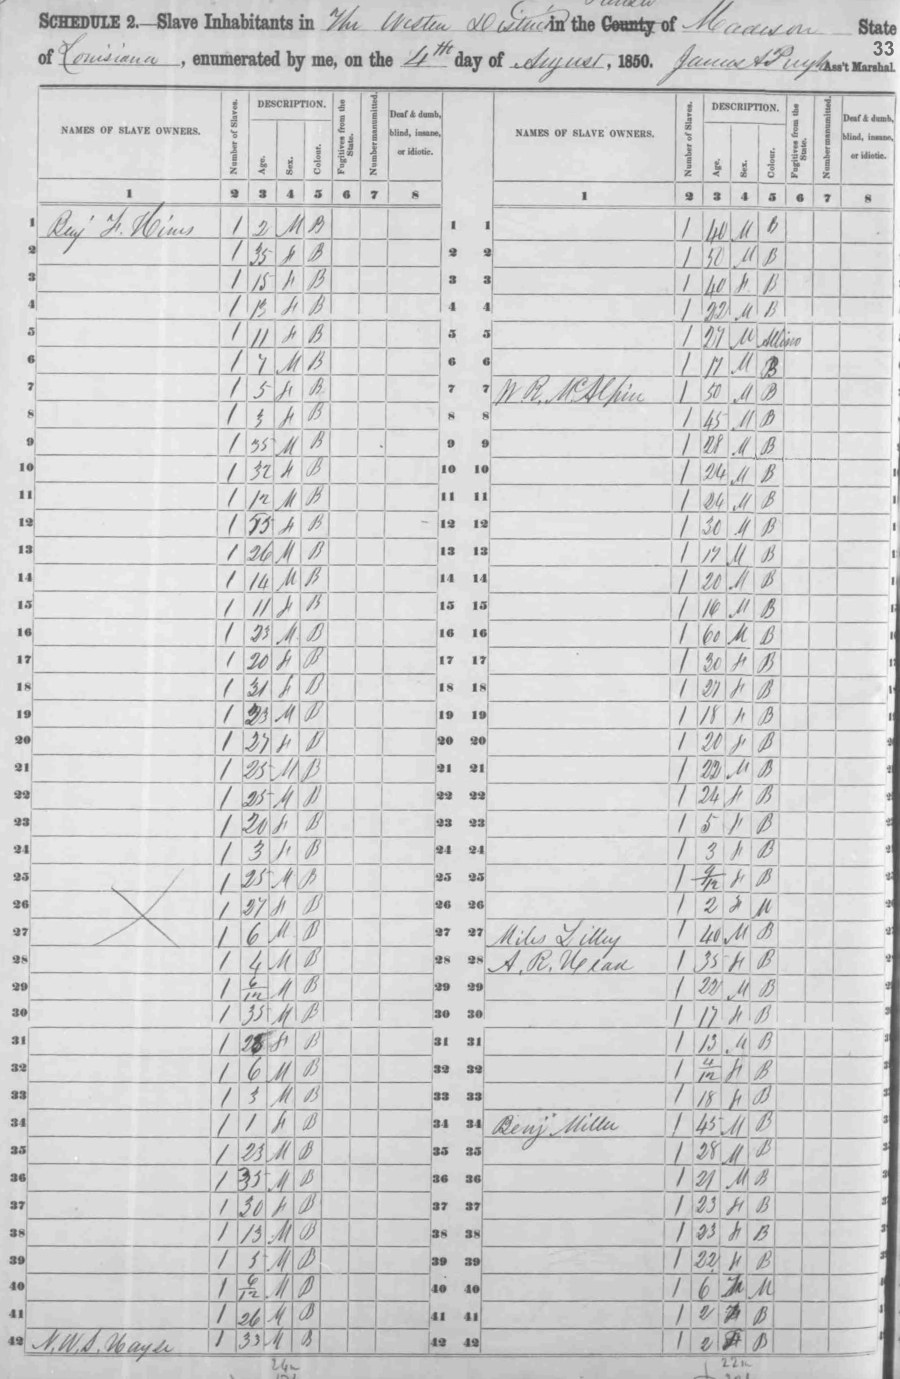 SCHEDULE 2.—Slave Inhabitants in The Western District in the County of Madison State
33
of Louisiana, enumerated by me, on the 4th day of August, 1850. James A Pugh Ass't Marshal.
NAMES OF SLAVE OWNERS. Number of Slaves. DESCRIPTION. Age. Sex. Colour. Fugitives from the State. Number manumitted. Deaf & dumb, blind, insane, or idiotic. NAMES OF SLAVE OWNERS. Number of Slaves. DESCRIPTION. Age. Sex. Colour. Fugitives from the State. Number manumitted. Deaf & dumb, blind, insane, or idiotic.
1 2 3 4 5 6 7 8 1 2 3 4 5 6 7 8
1 Benj F. Hines 1 2 M B 1 1 1 40 M B
2 1 35 F B 2 2 1 50 M B
3 1 15 F B 3 3 1 40 F B
4 1 13 F B 4 4 1 22 M B
5 1 11 F B 5 5 1 27 M Albino
6 1 7 M B 6 6 1 17 M B
7 1 5 F B 7 7 W. R. McAlpin 1 50 M B
8 1 3 F B 8 8 1 45 M B
9 1 35 M B 9 9 1 28 M B
10 1 32 F B 10 10 1 24 M B
11 1 12 M B 11 11 1 24 M B
12 1 F B 12 12 1 30 M B
13 1 26 M B 13 13 1 17 M B
14 1 14 M B 14 14 1 20 M B
15 1 11 F B 15 15 1 16 M B
16 1 23 M B 16 16 1 60 M B
17 1 20 F B 17 17 1 30 F B
18 1 31 F B 18 18 1 27 F B
19 1 23 M B 19 19 1 18 F B
20 1 27 F B 20 20 1 20 F B
21 1 25 M B 21 21 1 22 M B
22 1 25 M B 22 22 1 24 F B
23 1 20 F B 23 23 1 5 F B
24 1 3 F B 24 24 1 3 F B
25 1 25 M B 25 25 1 9/12 F B
26 1 27 F B 26 26 1 2 F M
27 1 6 M B 27 27 Miles Lilley 1 40 M B
28 1 4 M B 28 28 A. R. Head 1 35 F B
29 1 6/12 M B 29 29 1 22 M B
30 1 35 M B 30 30 1 17 F B
31 1 F B 31 31 1 13 M B
32 1 6 M B 32 32 1 4/12 F B
33 1 3 M B 33 33 1 18 F B
34 1 1 F B 34 34 Benj Miller 1 45 M B
35 1 23 M B 35 35 1 28 M B
36 1 35 M B 36 36 1 21 M B
37 1 30 F B 37 37 1 23 F B
38 1 13 M B 38 38 1 23 F B
39 1 5 M B 39 39 1 22 F B
40 1 6/12 M B 40 40 1 6 M
41 1 26 M B 41 41 1 2 B
42 N. W. S. Hayse 1 33 M B 42 42 1 2 B